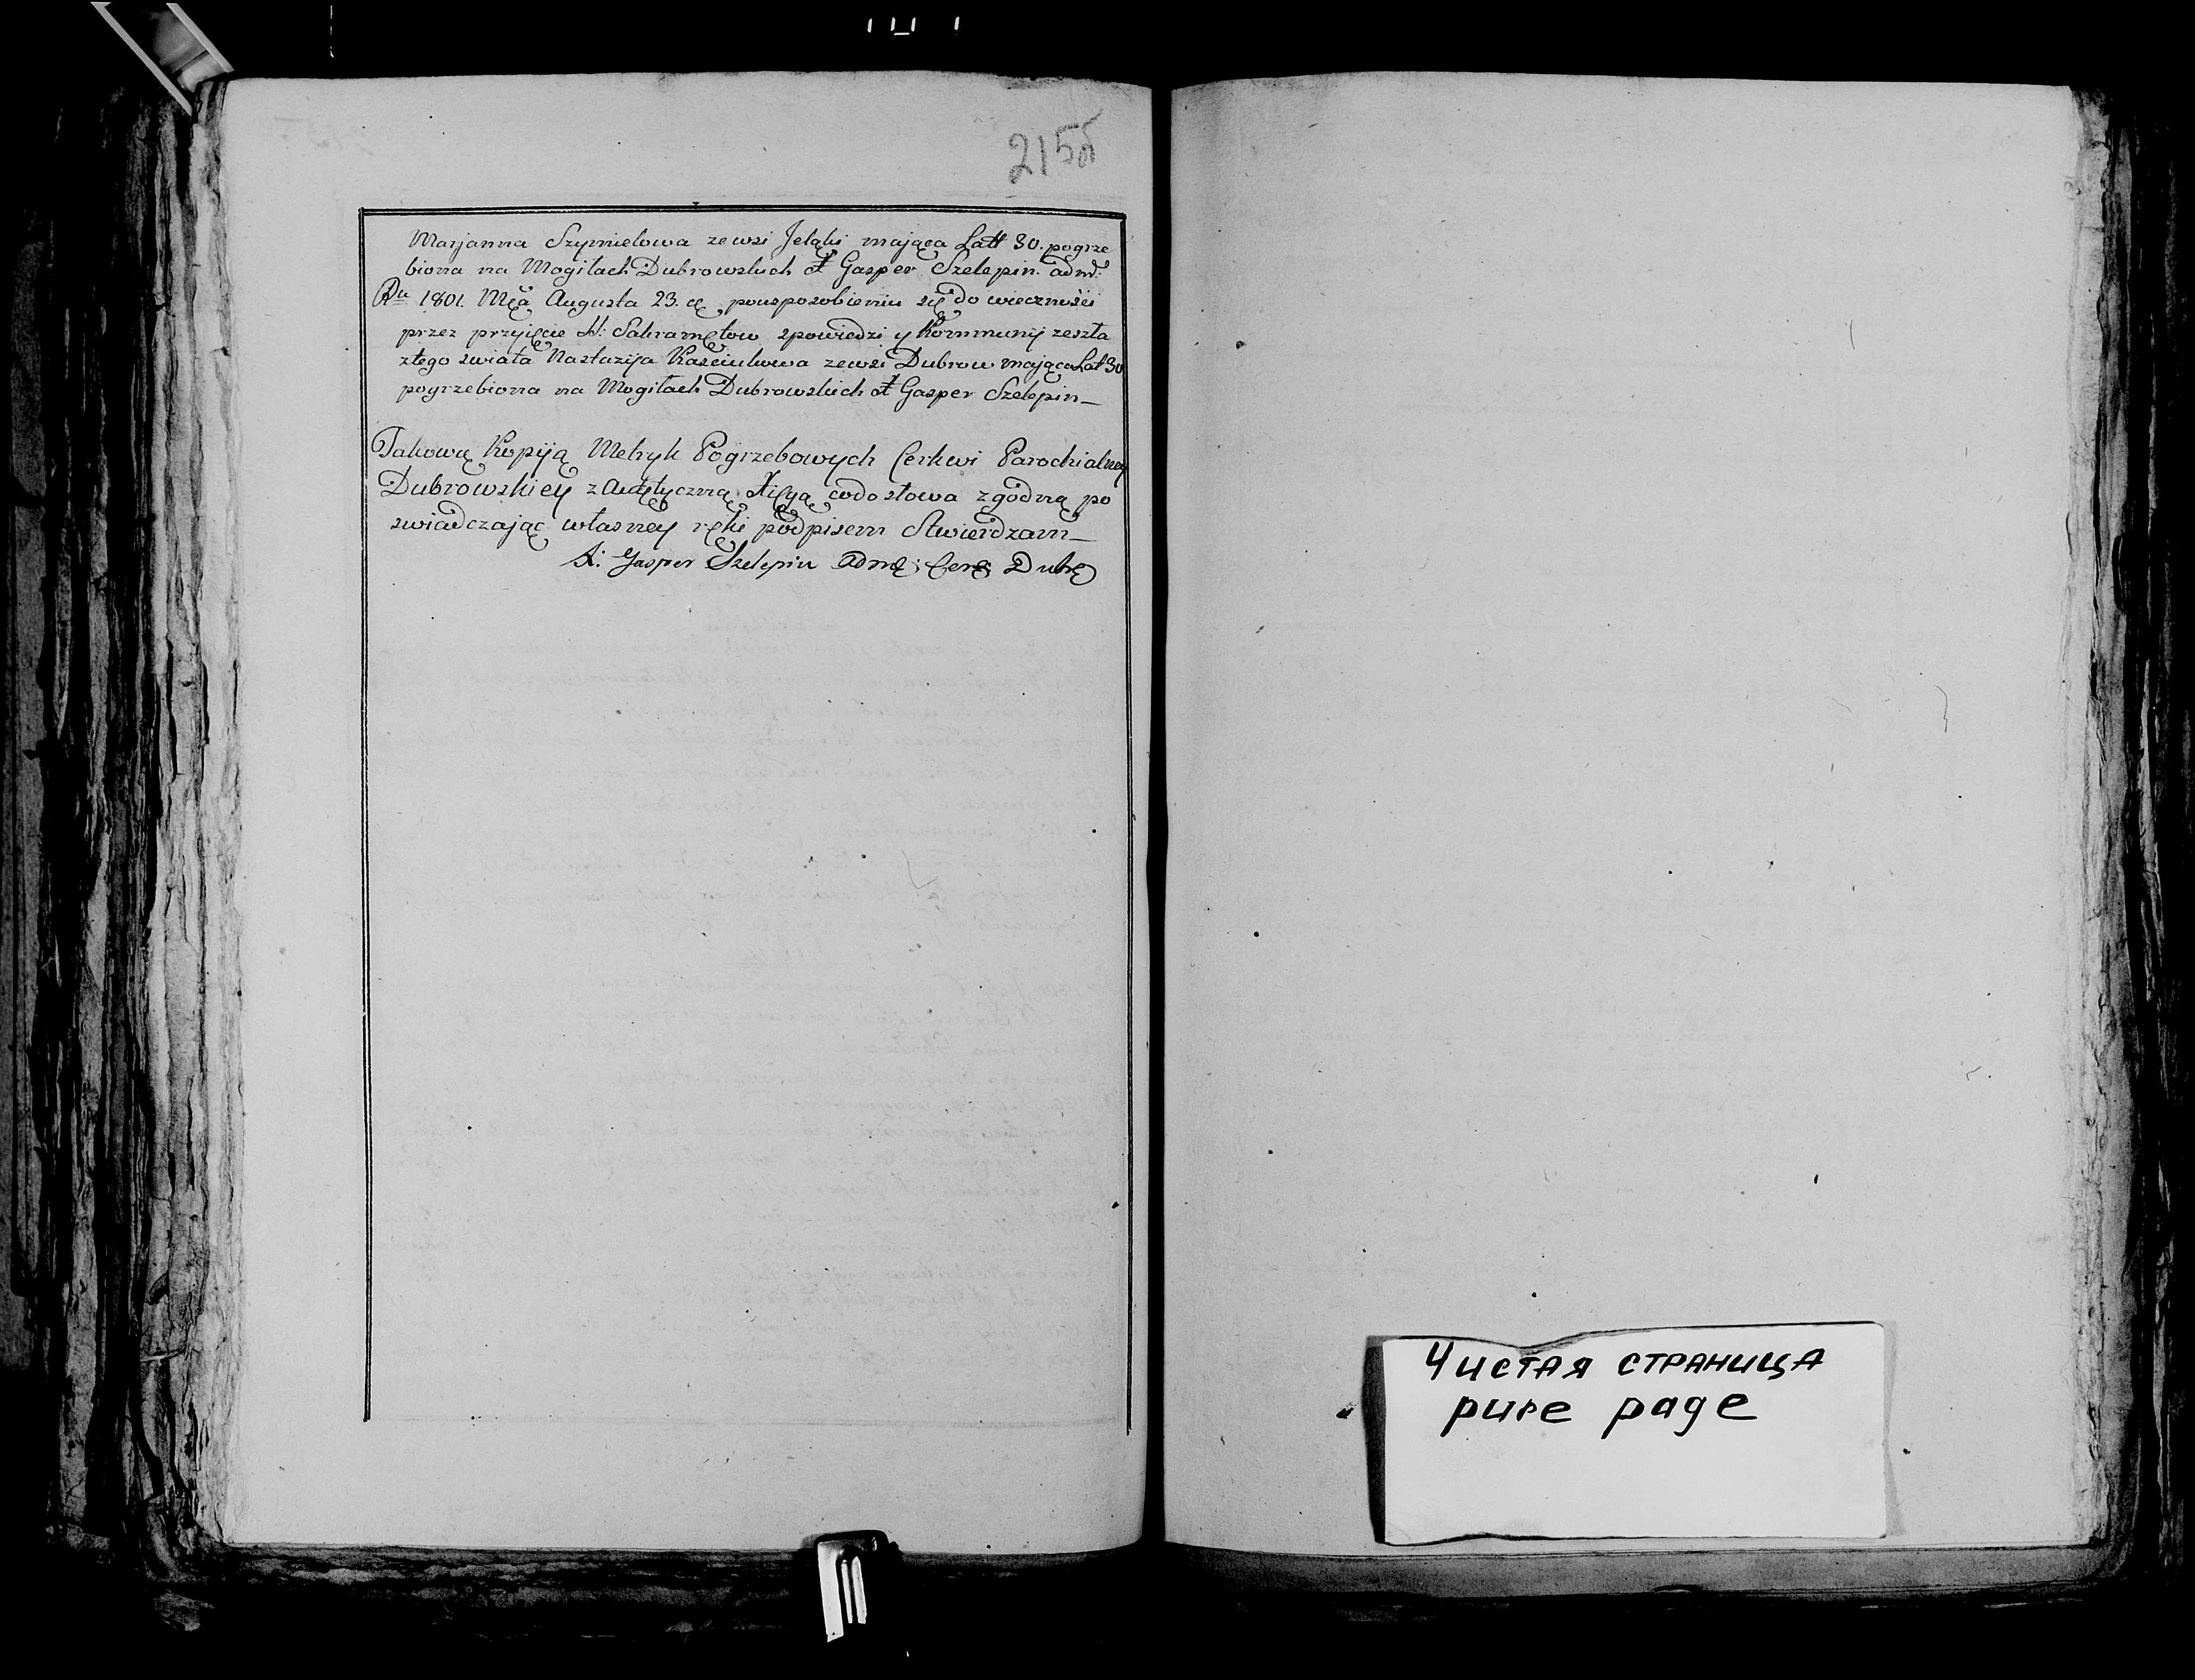 215б
Marjanna Szymielowa ze wsi Jelaki mająca Latt 30. pogrze
biona na Mogiłach Dubrowskich X Gasper Szelepin. adm:
Ru 1801. Mca Augusta 23. po usposobieniu się do wieczności
przez przyięcie SS: Sakramętow spowiedzi y Kommunij zeszła
z tego swiata Nastazija Kasciukowa ze wsi Dubrow mająca Lat 30
pogrzebiona na Mogiłach Dubrowskich X Gasper Szelepin
Takową Kopiją Metryk Pogrzebowych Cerkwi Parochialney
Dubrowskiey z Autętyczną co do słowa zgodną po
swiadczając własney ręki podpisem Stwierdzam
X: Gasper Szelepin Adm: Cer: Dub
Чистая страница
pure page